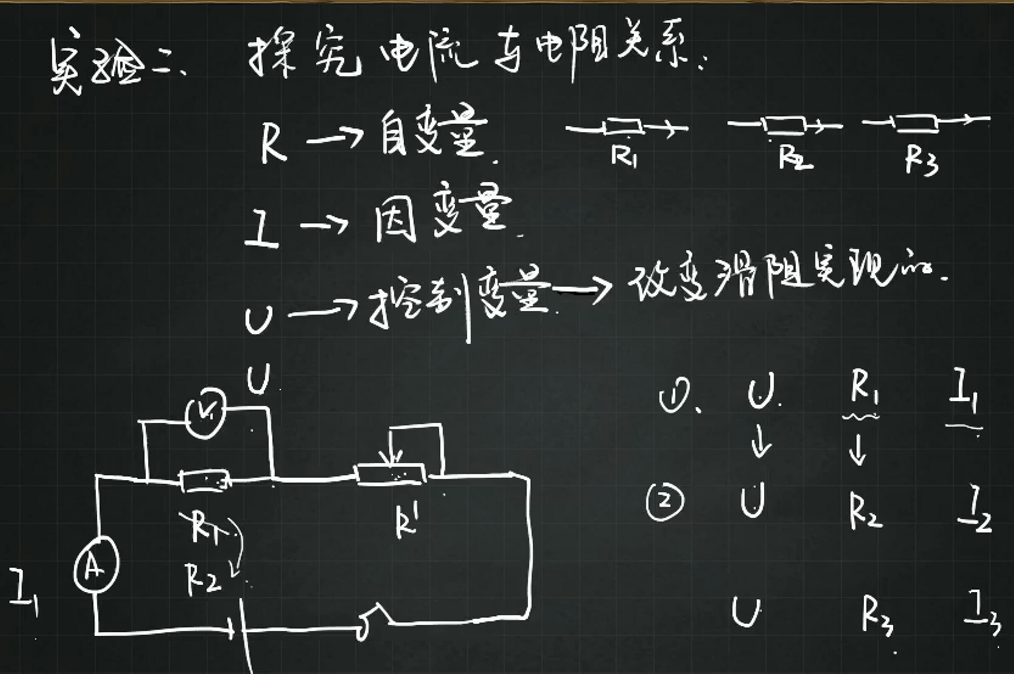 实验二、 探究电流与电阻关系.
R → 自变量. R1 R2 R3
I → 因变量.
U → 控制变量. → 改变滑阻实现的.
U.
V1
①. U. R1 I1
↓ ↓
② U R2 I2
R1 R'
A R2
I1
U R3 I3